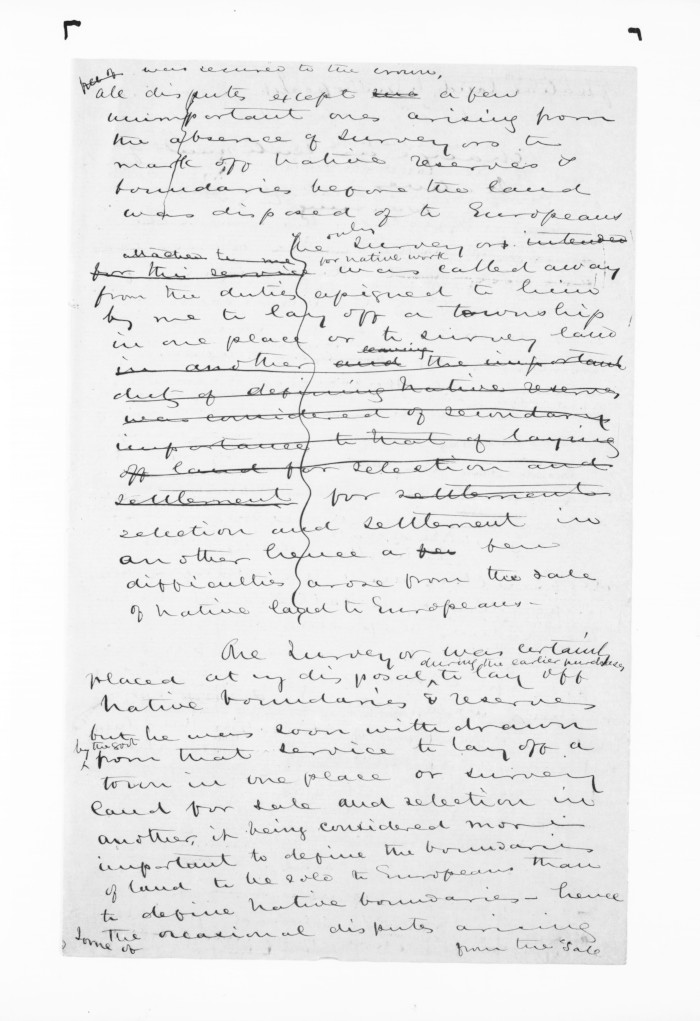 was secured to the crown,
all disputes except some a few
unimportant ones arising from
the absence of surveyors to
mark off native reserves &
boundaries before the land
was disposed of to Europeans
only
The Surveyor intended
attached to me for native work
for this service was called away
from the duties assigned to him
by me to lay off a township
in one place or to survey land
leaving
in another and the important
duty of defining native reserves
was considered of secondary
importance to that of laying
off land for selection and
settlement for settlement
selection and settlement in
another hence a few few
difficulties arose from the sale
of native land to Europeans -
One Surveyor was certainly
during the earlier purchases
placed at my disposal to lay off
native boundaries & reserves
but he was soon withdrawn
by the Govt
from that service to lay off a
town in one place or survey
land for sale and selection in
another, it being considered more
important to define the boundaries
of land to be sold to Europeans than
to define native boundaries - hence
the occasional disputes arising
some of from the sale